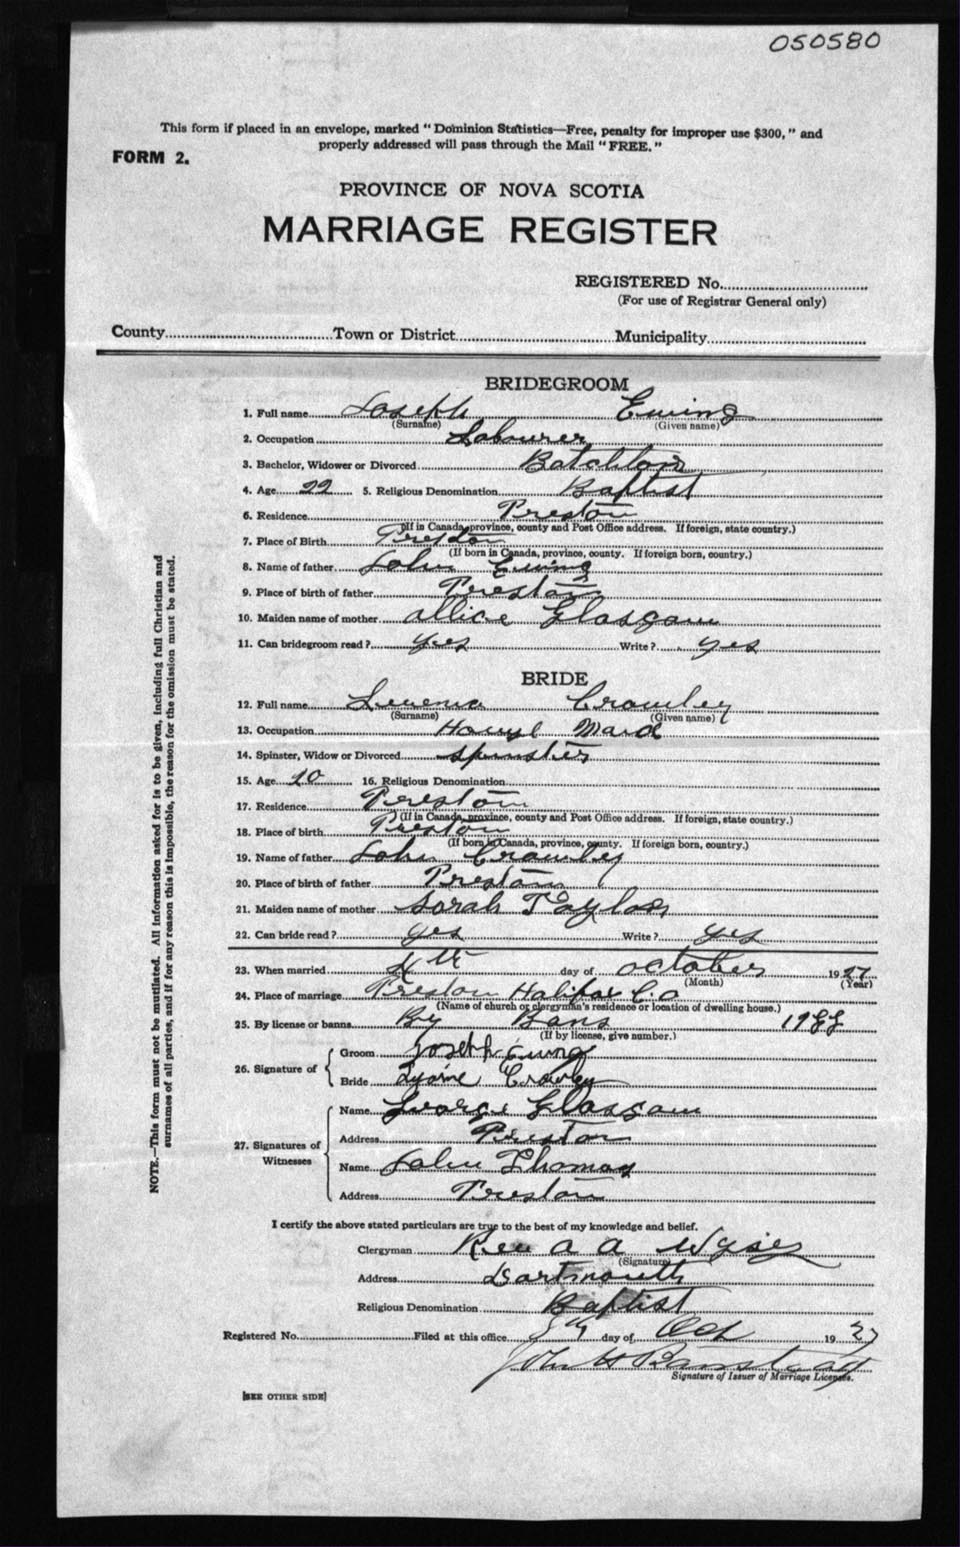 050580
This form if placed in an envelope, marked "Dominion Statistics—Free, penalty for improper use $300," and
properly addressed will pass through the Mail "FREE."
FORM 2.
PROVINCE OF NOVA SCOTIA
MARRIAGE REGISTER
REGISTERED No.
(For use of Registrar General only)
County Town or District Municipality
BRIDEGROOM
1. Full name Joseph Ewing
(Surname) (Given name)
2. Occupation Labourer
3. Bachelor, Widower or Divorced Batchlor
4. Age 22 5. Religious Denomination Baptist
6. Residence Preston
(If in Canada, province, county and Post Office address. If foreign, state country.)
7. Place of Birth Preston
(If born in Canada, province, county. If foreign born, country.)
8. Name of father John Ewing
9. Place of birth of father Preston
10. Maiden name of mother Allice Glasgow
11. Can bridegroom read? yes Write? yes
BRIDE
12. Full name Crowley
(Surname) (Given name)
13. Occupation Maid
14. Spinster, Widow or Divorced Spinster
15. Age 16. Religious Denomination
17. Residence Preston
(If in Canada, province, county and Post Office address. If foreign, state country.)
18. Place of birth Preston
(If born in Canada, province, county. If foreign born, country.)
19. Name of father John Crowley
20. Place of birth of father Preston
21. Maiden name of mother Sarah Taylor
22. Can bride read? yes Write? yes
23. When married day of October 1927
(Month) (Year)
24. Place of marriage Preston Halifax Co
(Name of church or clergyman's residence or location of dwelling house.)
25. By license or banns By Bans
(If by license, give number.)
26. Signature of Groom Joseph Ewing
Bride Crowley
27. Signatures of Witnesses Name George Glasgow
Address Preston
Name John Thomas
Address Preston
I certify the above stated particulars are true to the best of my knowledge and belief.
Clergyman Rev A A Wyse
(Signature)
Address Dartmouth
Religious Denomination Baptist
Registered No. Filed at this office 8th day of Oct 1927
Signature of Issuer of Marriage Licenses.
[SEE OTHER SIDE]
NOTE.—This form must not be mutilated. All information asked for is to be given, including full Christian and
surnames of all parties, and if for any reason this is impossible, the reason for the omission must be stated.